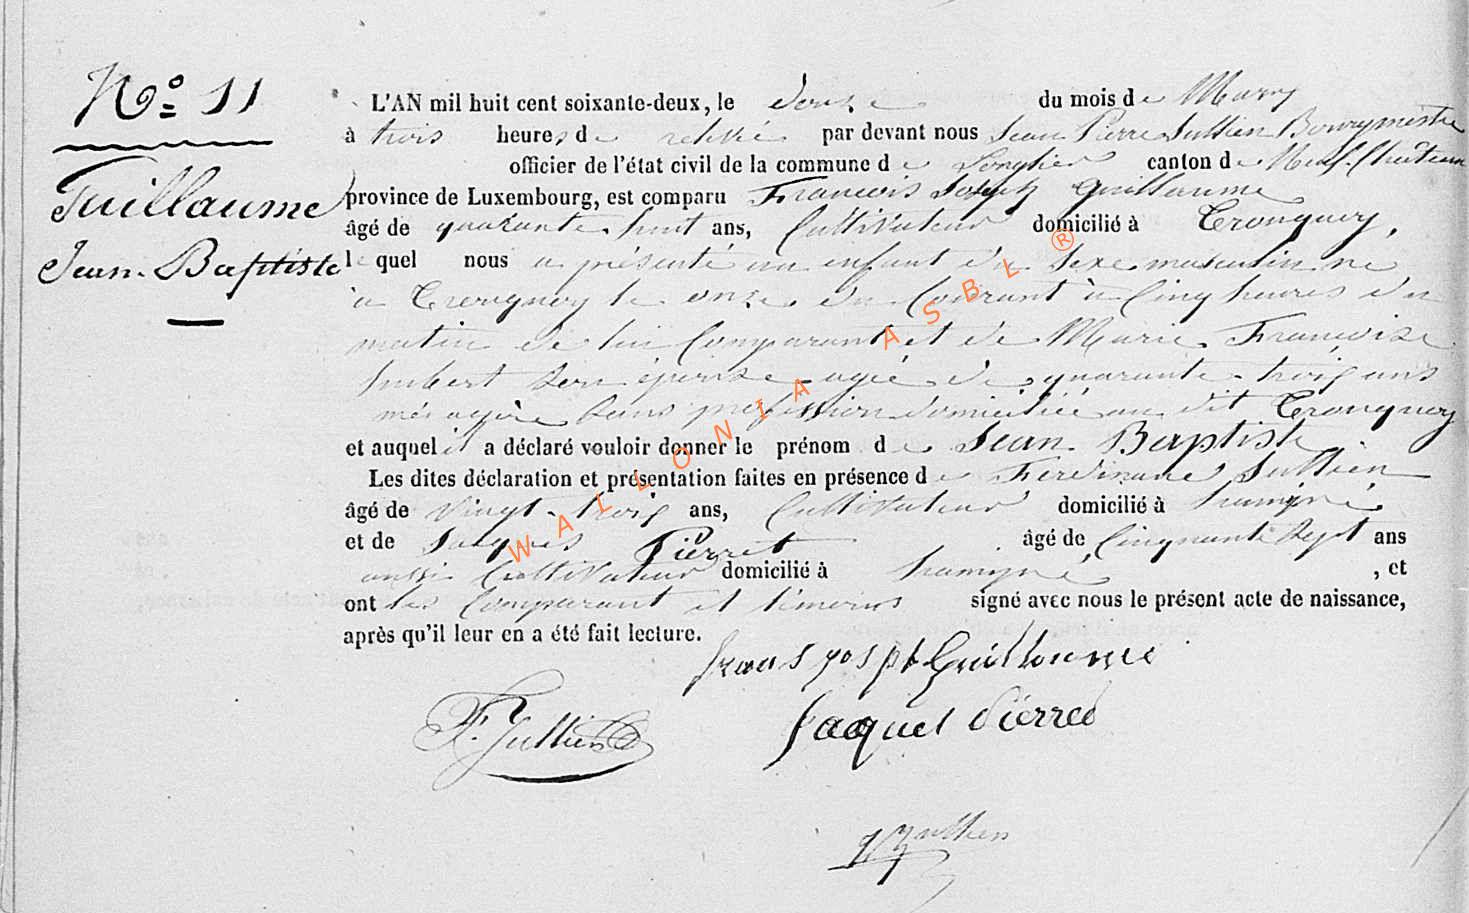 No. 11
Guillaume
Jean-Baptiste
L'AN mil huit cent soixante-deux, le douze du mois de Mars
à trois heures de relevée par devant nous Jean Pierre Jullien Bourgmestre
officier de l'état civil de la commune de Longlier canton de Neufchateau
province de Luxembourg, est comparu Francois Joseph Guillaume
âgé de quarante huit ans, Cultivateur domicilié à Tronquoy,
le quel nous a présenté un enfant du Sexe masculin né
à Tronquoy le onze du Courant à Cinq heures du
matin de lui Comparant et de Marie Françoise
Imbert son épouse agée de quarante trois ans
ménagère sans profession domiciliée au dit Tronquoy
et auquel il a déclaré vouloir donner le prénom de Jean Baptiste
Les dites déclaration et présentation faites en présence de Ferdinand Jullien
âgé de vingt-trois ans, Cultivateur domicilié à hamipré
et de Jacques Pierret âgé de Cinquante Sept ans
aussi Cultivateur domicilié à hamipré, et
ont les Comparant et témoins signé avec nous le présent acte de naissance,
après qu'il leur en a été fait lecture.
Guillaume
F. Jullien
Jaques Pierret
Jullien
WALLONIA ASBL ®